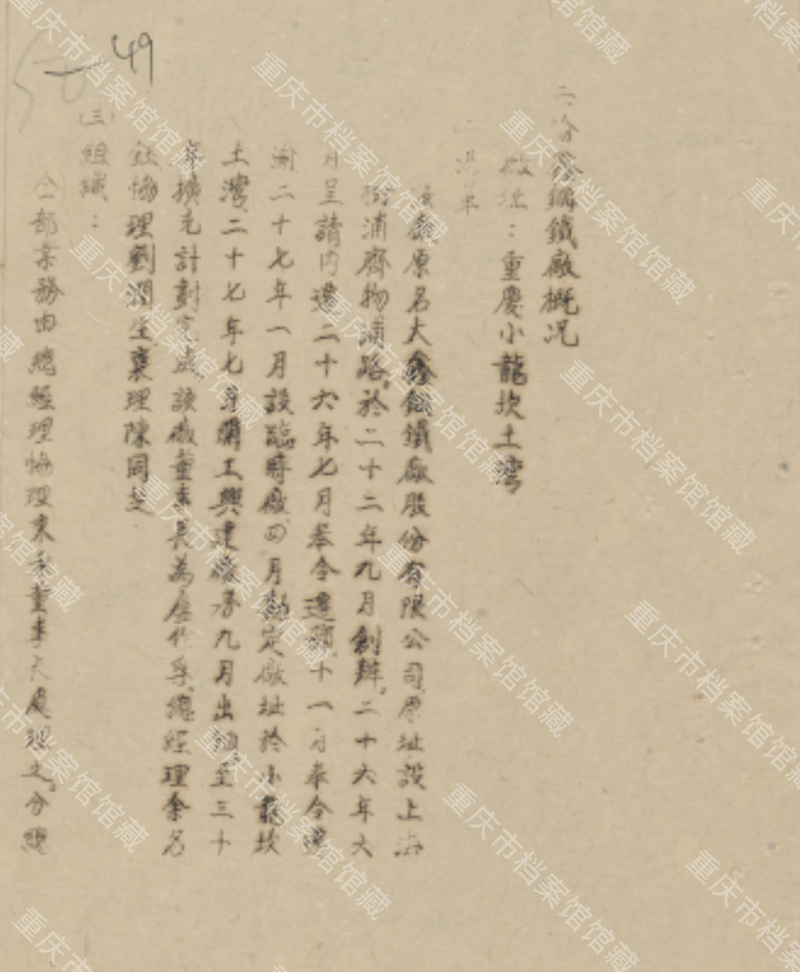 49
二、合鑫鋼鐵廠概况
廠址：重慶小龍坎土灣
沿革
該廠原名大鑫鋼鐵廠股份有限公司原址設上海
樹浦齊物浦路。於二十二年九月創辦。二十六年六
月呈請內遷二十六年七月奉令遷鄂、十一月奉令遷
渝二十七年一月設臨時廠、四月勘定廠址於小龍坎
土灣、二十七年七月開工興建、九月出鋼。至三十
年擴充計劃完成、該廠董事長為盧作孚、總經理余名
鈺協理劉潤生襄理陳同芝
(三)組織：
全部業務由總經理協理秉承董事長處理之。分總
重庆市档案馆馆藏